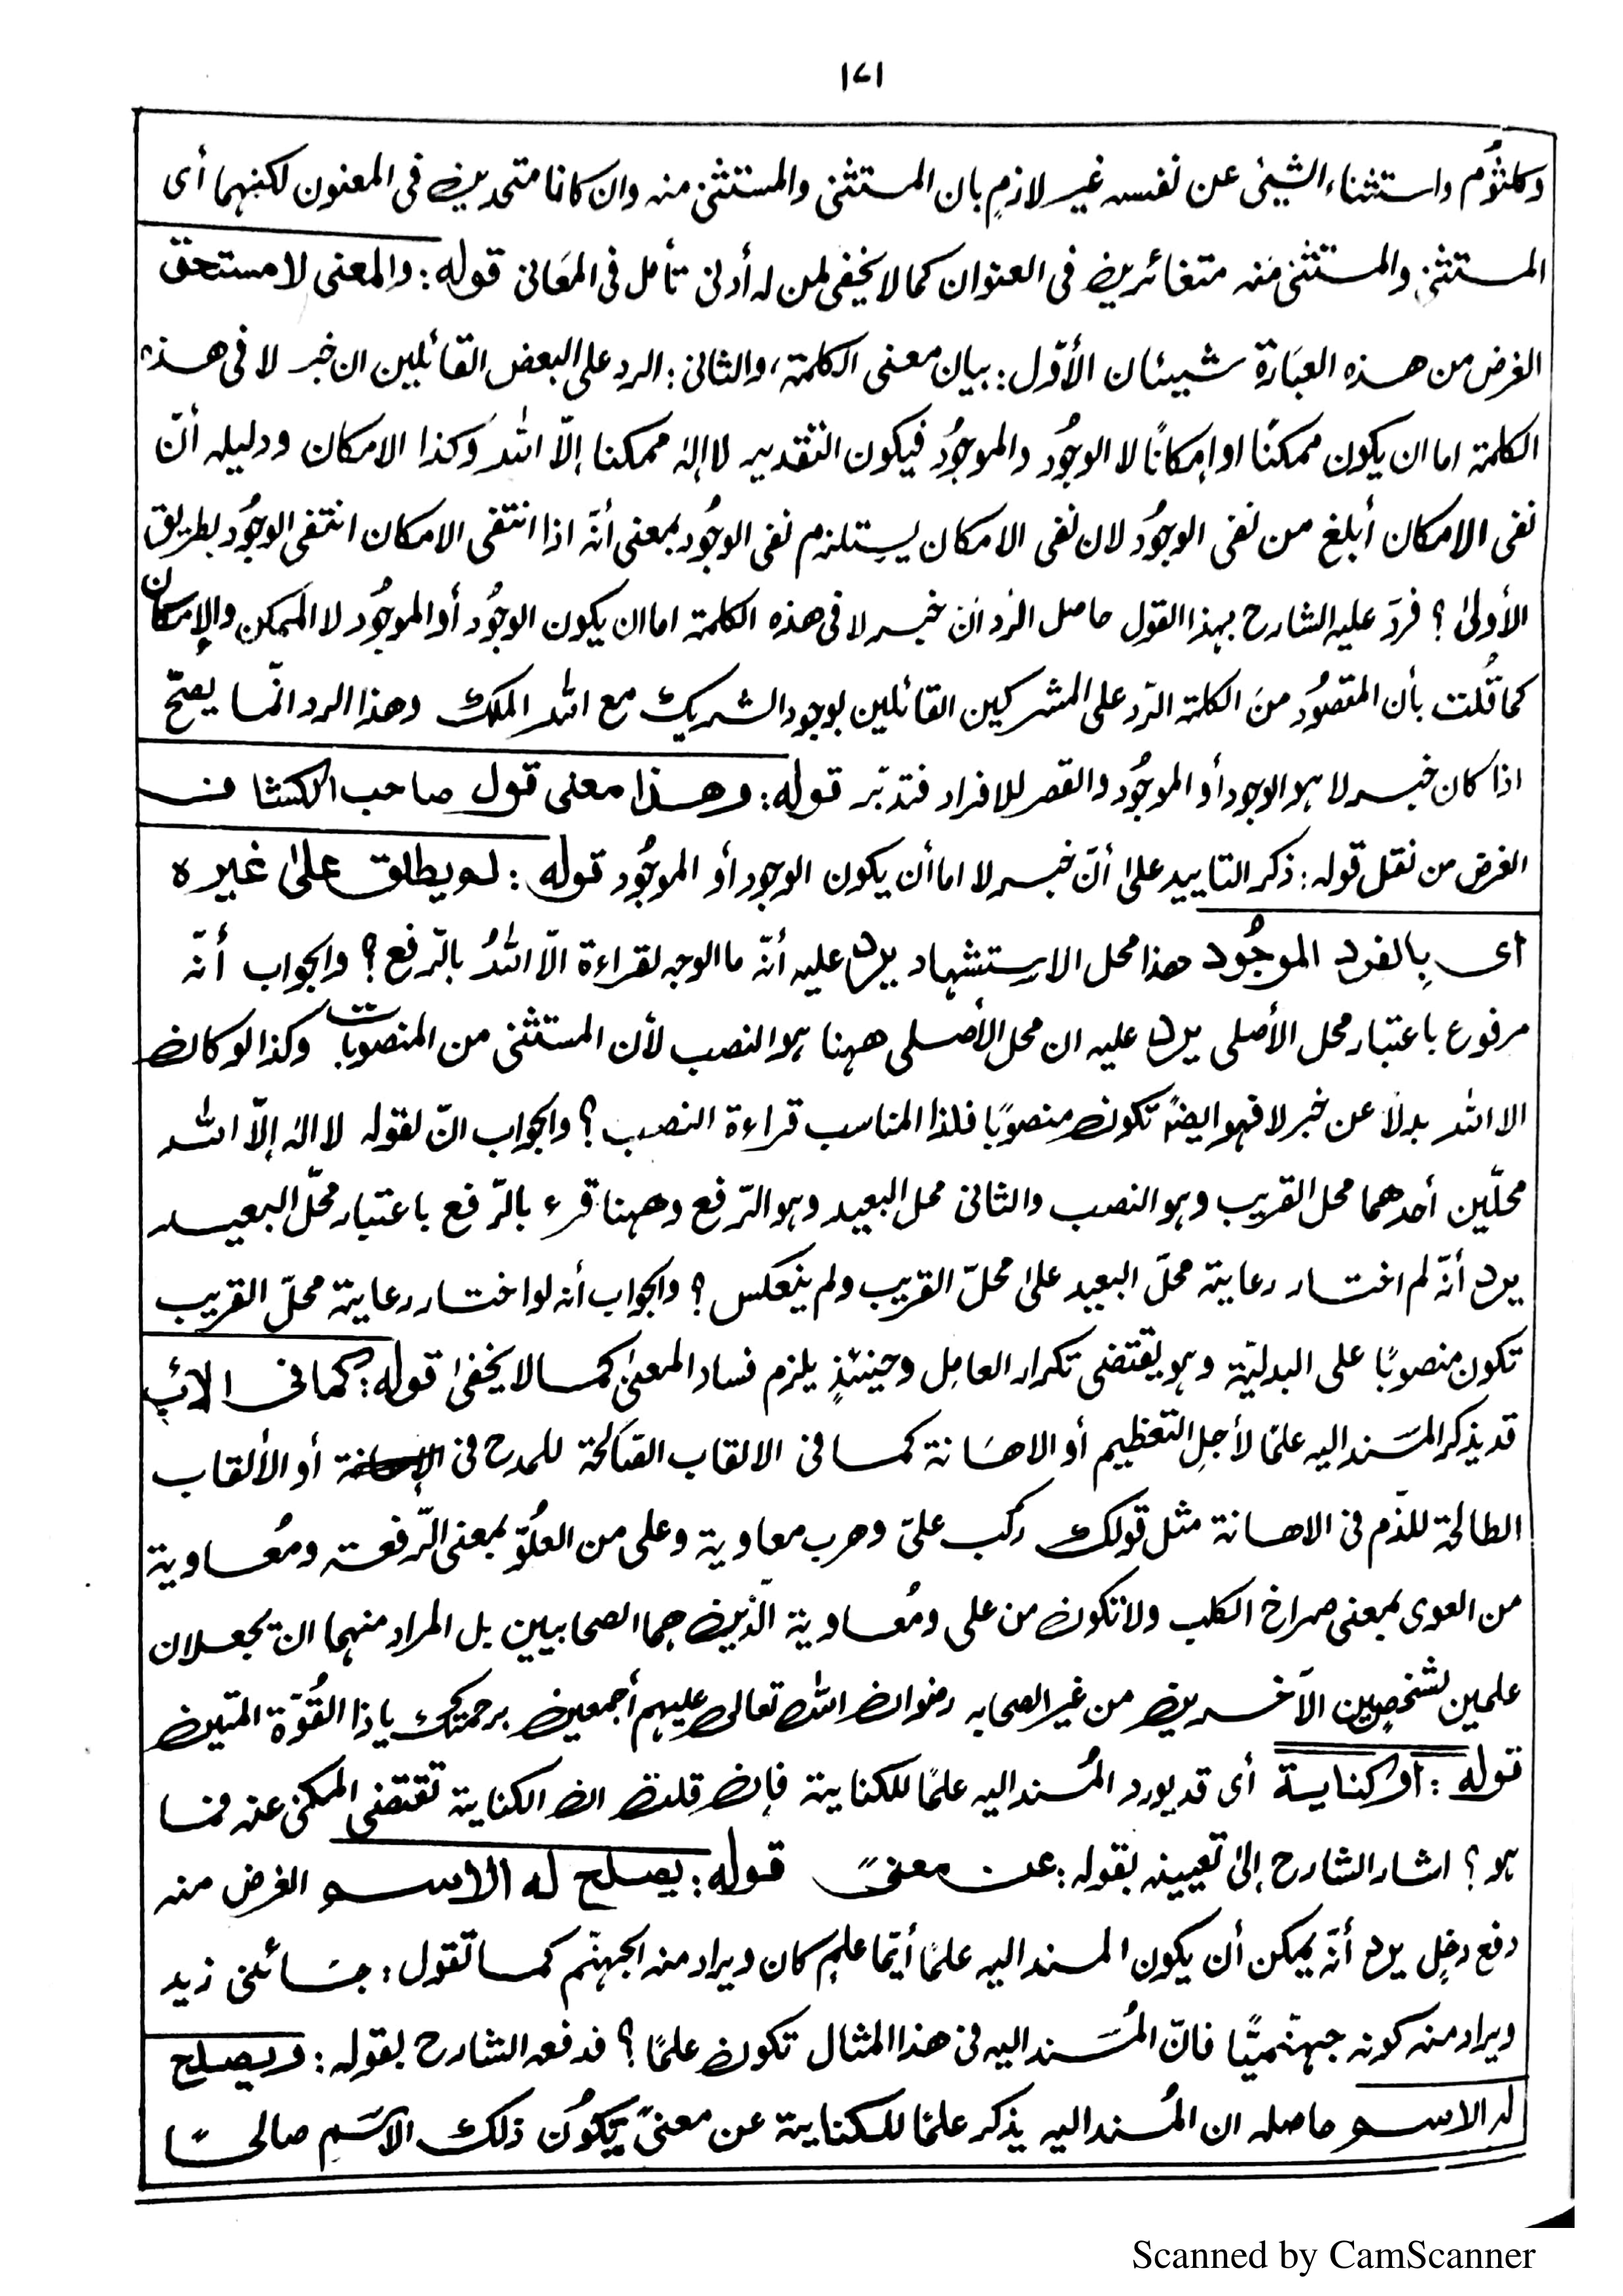 ١٧١
وكلثوُم واستثناء الشيئ عن نفسه غير لازمٍ بان المستثنى والمستثنى منه وان كانا متحدين فى المعنون لكنهما أى
المستثنى والمستثنى منه متغائرين فى العنوان كما لا يخفى لمن له أدنى تأمل فى المعَانى قوله: والمعنى لا مستحق
الغرض من هذه العبَارة شيئان الأوّل: بيان معنى الكلمة، والثانى: الرد على البعض القائلين ان خبر لا فى هذه
الكلمة اما ان يكون ممكنًا او إمكانًا لا الوجُود والموجُود فيكون التقدير لا إله ممكنا إلّا الله وَكذا الامكان ودليله أنّ
نفى الامكان أبلغ من نفى الوجوُد لان نفى الامكان يستلزم نفى الوجُود بمعنى أنّه اذا انتفى الامكان انتفى الوجوُد بطريق
الأولىٰ؟ فردّ عليه الشارح بهذا القول حاصل الرد انّ خبر لا فى هذه الكلمة اما ان يكون الوجُود أو الموجُود لا الممكن والإمكان
كما قُلت بأن المقصوُد منَ الكلمة الرّد على المشركين القائلين بوجود الشريك مع الله الملك وهذا الرد انّما يصحّ
اذا كان خبر لا هو الوجود أو الموجُود والقصر للافراد فتدبّر قوله: وهذا معنى قول صاحب الكشاف
الغرض من نقل قوله: ذكر التاييد علىٰ أنّ خبر لا اما أن يكون الوجود أو الموجُود قوله: لم يطلق علىٰ غيره
اى بِالفرد الموجُود هذا محل الاستشهاد يرد عليه أنّه ما الوجه لقراءة الّا اللهُ بالرّفع؟ والجواب أنّه
مرفوع باعتبار محل الأصلى يرد عليه ان محل الأصلى ههنا هو النصب لأن المستثنى من المنصوبات وكذا لو كان
الا الله بدلًا عن خبر لا فهو ايضًا تكون منصوبًا فلذا المناسب قراءة النصب؟ والجواب انّ لقوله لا اله إلّا الله
محلّين أحدهما محل القريب وهو النصب والثانى محل البعيد وهو الرّفع وههنا قرء بالرّفع باعتبار محلّ البعيد
يرد أنّه لم اختار رعاية محلّ البعيد علىٰ محلّ القريب ولم ينعكس؟ والجواب أنه لو اختار رعاية محلّ القريب
تكون منصوبًا على البدليّة وهو يقتضى تكرار العامِل وحينئذٍ يلزم فساد المعنىٰ كما لا يخفىٰ قوله: كما فى الا
قد يذكر المسَند اليه علمًا لأجلِ التعظيم أو الاهَانة كما فى الالقاب الصَالحة للمدح فى أو الألقاب
الطالحة للذّم فى الاهانة مثل قولك ركب علىّ وهرب معاوية وعلى من العلُوّ بمعنى الرّفعة ومُعاوية
من العوى بمعنى صراخ الكلب ولا تكون من على ومُعاوية الّذين هما الصحابيين بل المراد منهما ان يجعلان
علمين لشخصين الآخرين من غير الصحابه رضوان الله تعالى عليهم أجمعين برحمتك ياذا القُوّة المتين
قوله: او كناية أى قد يورد المُسند اليه علمًا للكناية فإن قلت ان الكناية تقتضى المكنى عنه فما
هو؟ اشار الشارح إلىٰ تعيينه بقوله: عن معنىً قوله: يصلح له الاسم الغرض منه
دفع دخلٍ يرد أنّه يمكن أن يكون المسند اليه علمًا أيّما علمٍ كان ويراد منه الجهنّم كما تقول: جَائنى زيد
ويراد منه كونه جهنّميًّا فانّ المُسَند اليه فى هذا المثال تكون علمًا؟ فدفعه الشارح بقوله: ويصلح
له الاسم حاصله ان المُسند اليه يذكر علمًا للكناية عن معنىً يَكوُن ذلك الاسَمِ صالحًا
Scanned by CamScanner